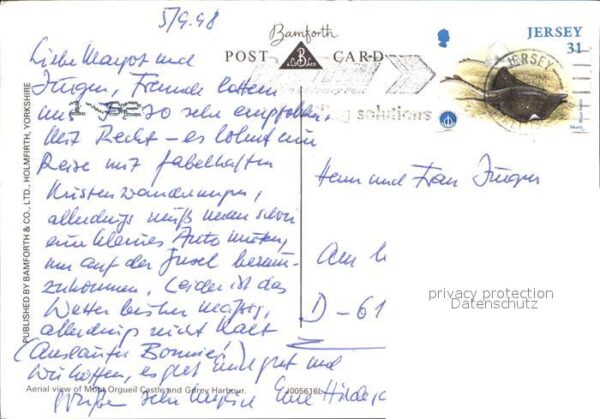 5/9.98
Bamforth
POST CARD
JERSEY
31
JERSEY
Skate
solutions
PUBLISHED BY BAMFORTH & CO., LTD., HOLMFIRTH, YORKSHIRE
Liebe Margot und
Jürgen, Freunde hatten
uns sehr empfohlen,
Mit Recht – es lohnt eine
Reise mit fabelhaften
Küstenwanderungen,
allerdings muß man schon
ein kleines Auto mieten,
um auf der Insel herum-
zukommen. Leider ist das
Wetter bisher mäßig,
allerdings nicht kalt
(Ausläufer Bonnie!)
Wir hoffen, es geht Euch gut und
grüßen sehr herzlich Eure
Herrn und Frau Jürgen
Am
D-61
privacy protection
Datenschutz
Aerial view of Mont Orgueil Castle and Gorey Harbour.
J005616L